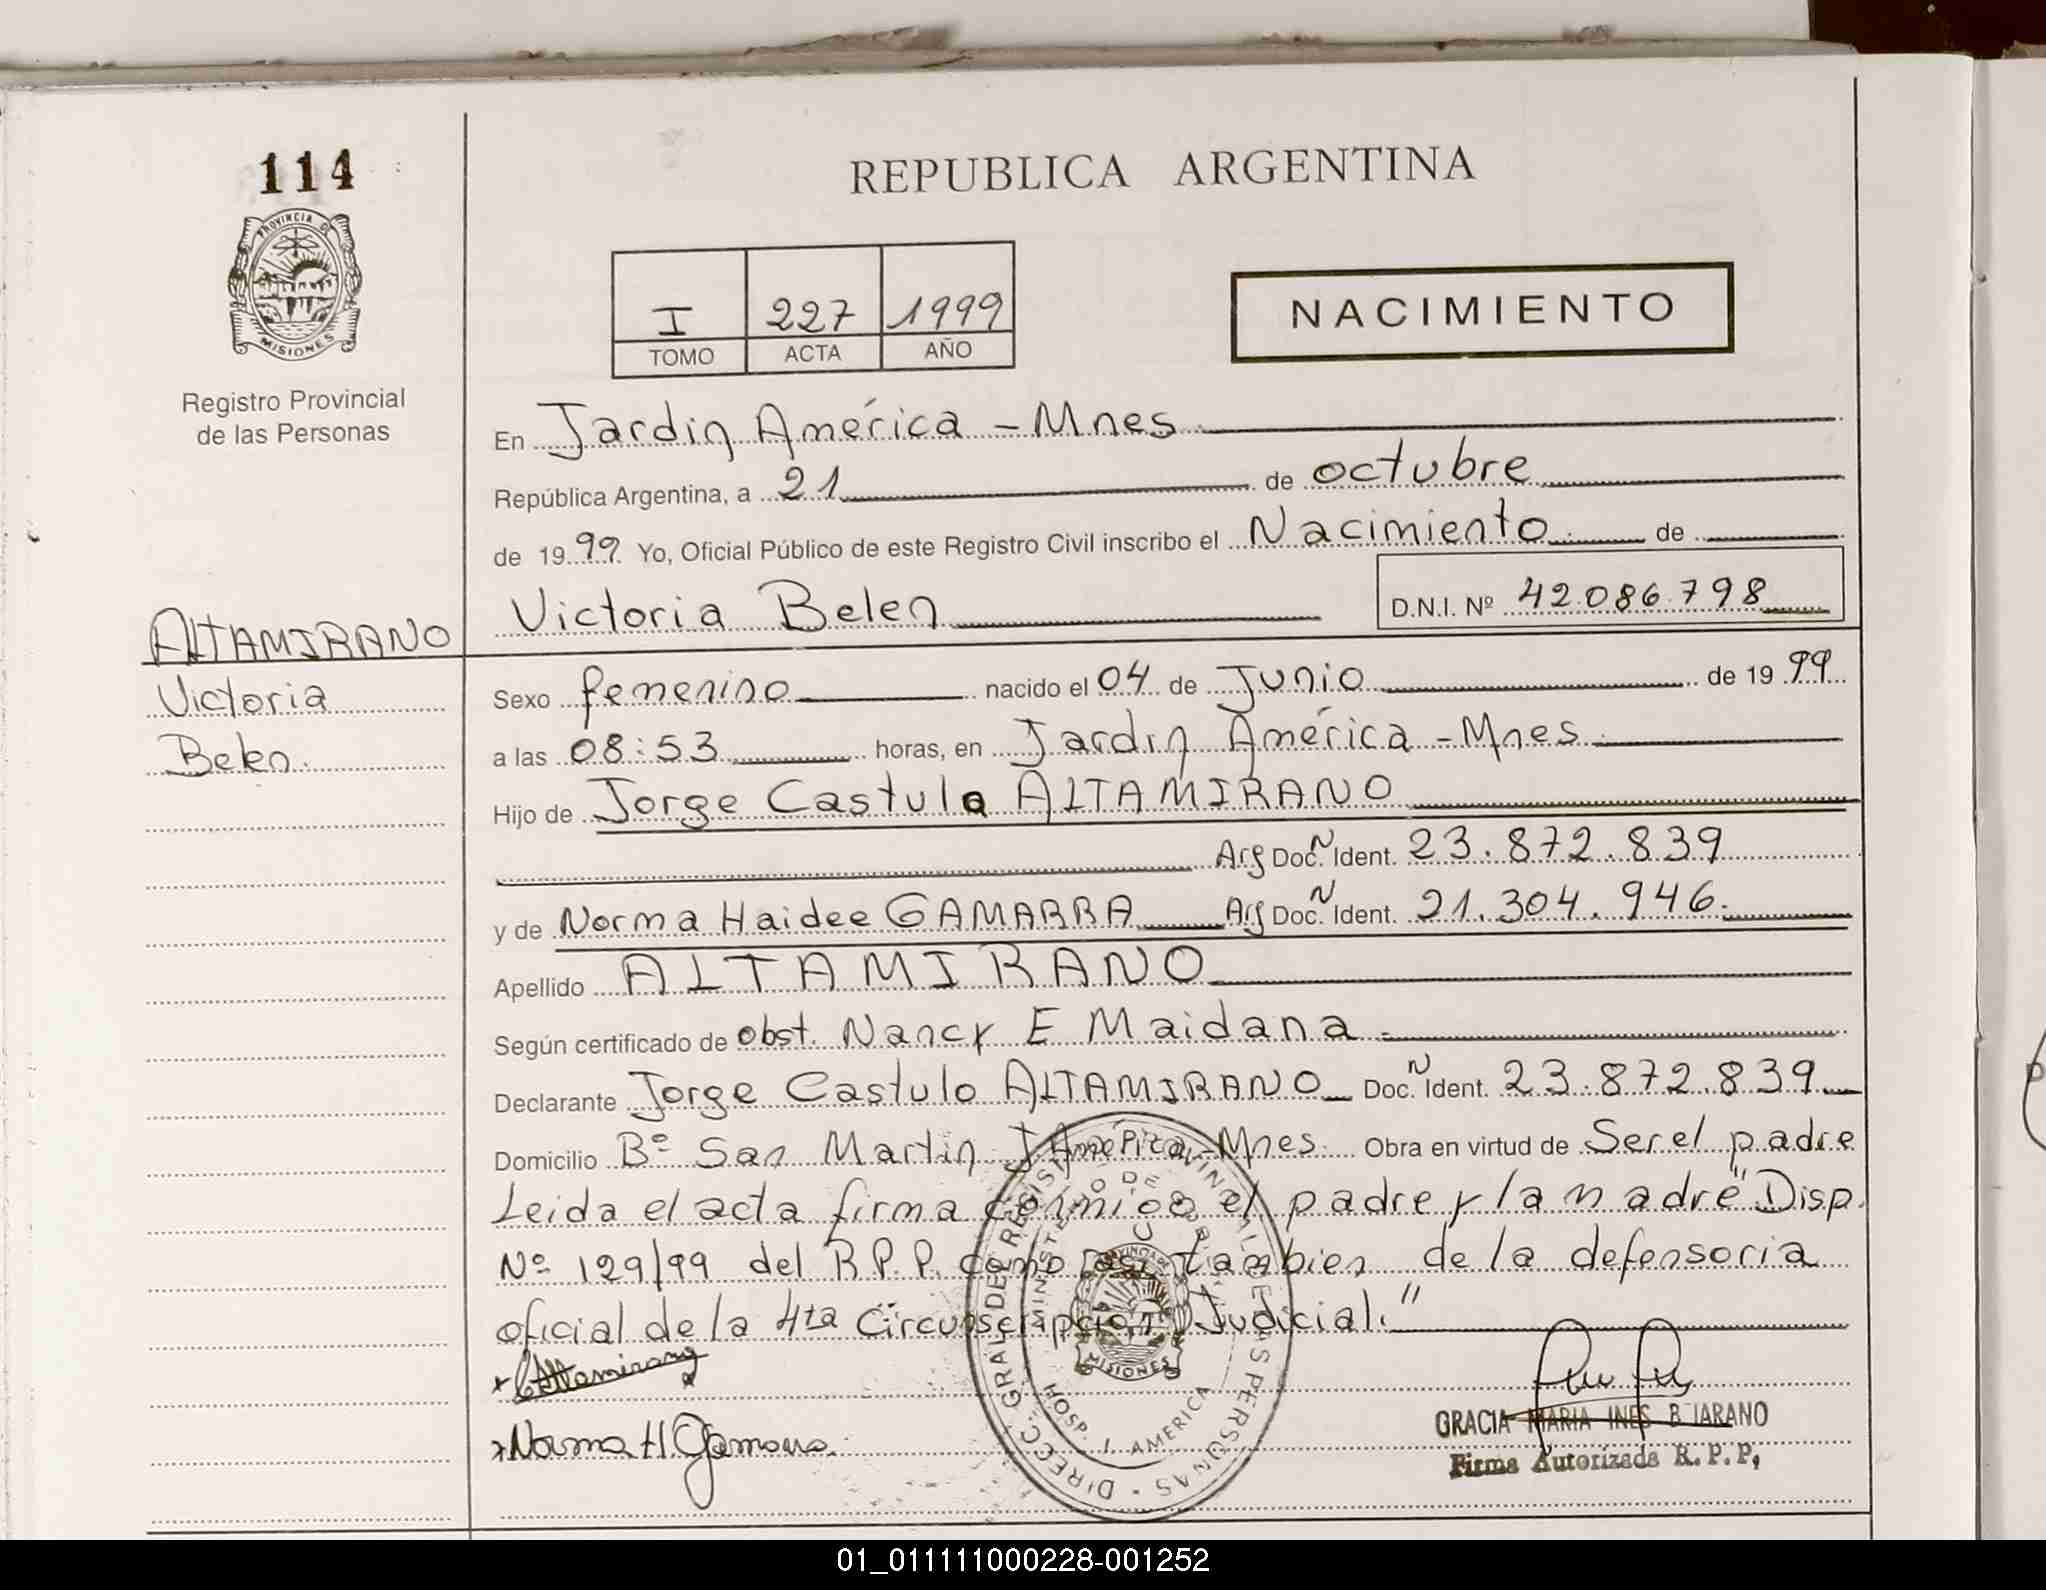 114
REPUBLICA ARGENTINA
PROVINCIA DE
MISIONES
I 227 1999
TOMO ACTA AÑO
NACIMIENTO
Registro Provincial
de las Personas
En Jardin América - Mnes
República Argentina, a 21 de octubre
de 1999 Yo, Oficial Público de este Registro Civil inscribo el Nacimiento de
Victoria Belen D.N.I. Nº 42.086.798
ALTAMIRANO
Victoria
Belen.
Sexo femenino nacido el 04 de Junio de 1999
a las 08:53 horas, en Jardin América - Mnes.
Hijo de Jorge Castulo ALTAMIRANO
Arg Doc. N Ident. 23.872.839
y de Norma Haidee GAMARRA Arg Doc. N Ident. 21.304.946.
Apellido ALTAMIRANO
Según certificado de obst. Nancy E Maidana
Declarante Jorge Castulo ALTAMIRANO Doc. N Ident. 23.872.839
Domicilio Bº San Martin J América - Mnes. Obra en virtud de Ser el padre
Leida el acta firma conmigo el padre y la madre "Disp.
Nº 129/99 del R.P.P. como asi tambien de la defensoria
oficial de la 4ta Circunscripcion Judicial."
x Altamirano
x Norma H. Gamarra.
DIRECC. GRAL DEL REGISTRO PROVINCIAL DE LAS PERSONAS
MINISTERIO DE GOBIERNO
HOSP. J. AMERICA
PROVINCIA DE
MISIONES
GRACIA MARIA INES B JARANO
Firma Autorizada R.P.P.
01_011111000228-001252